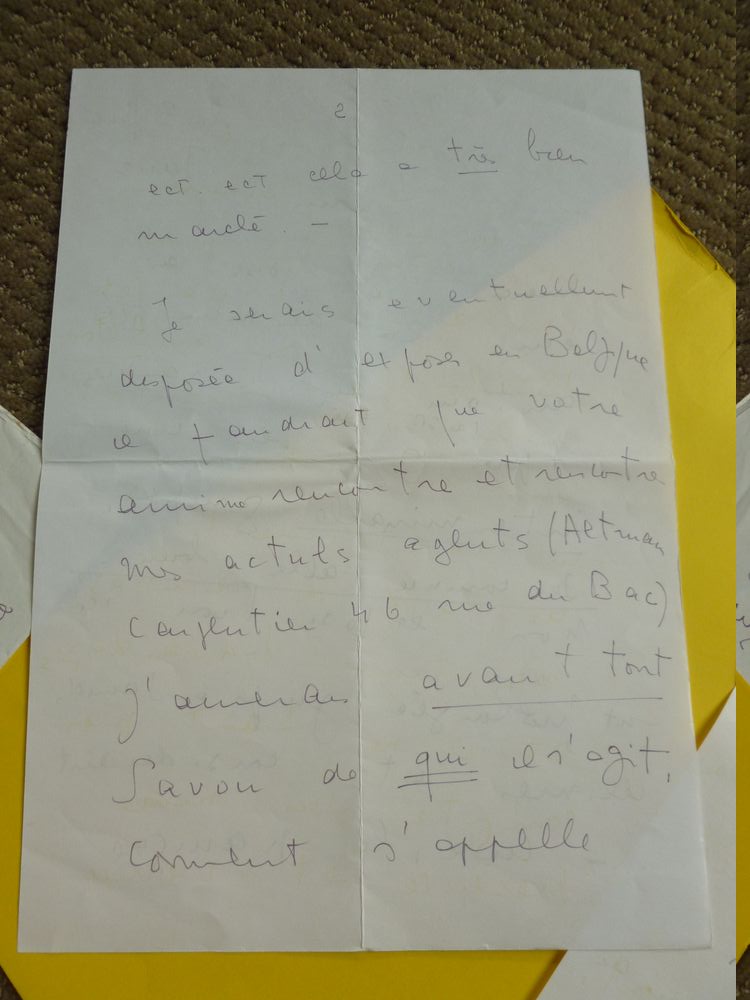 2
ect. ect cela a très bien
marché. —
Je serais eventuellemnt
disposée d'exposer en Belgique
il faudrait que votre
amime rencontre et rencontre
mes actuels agents (Altman
Carpentier 46 rue du Bac)
J'aimerais avant tout
Savoir de qui il s'agit,
Comment s'appelle